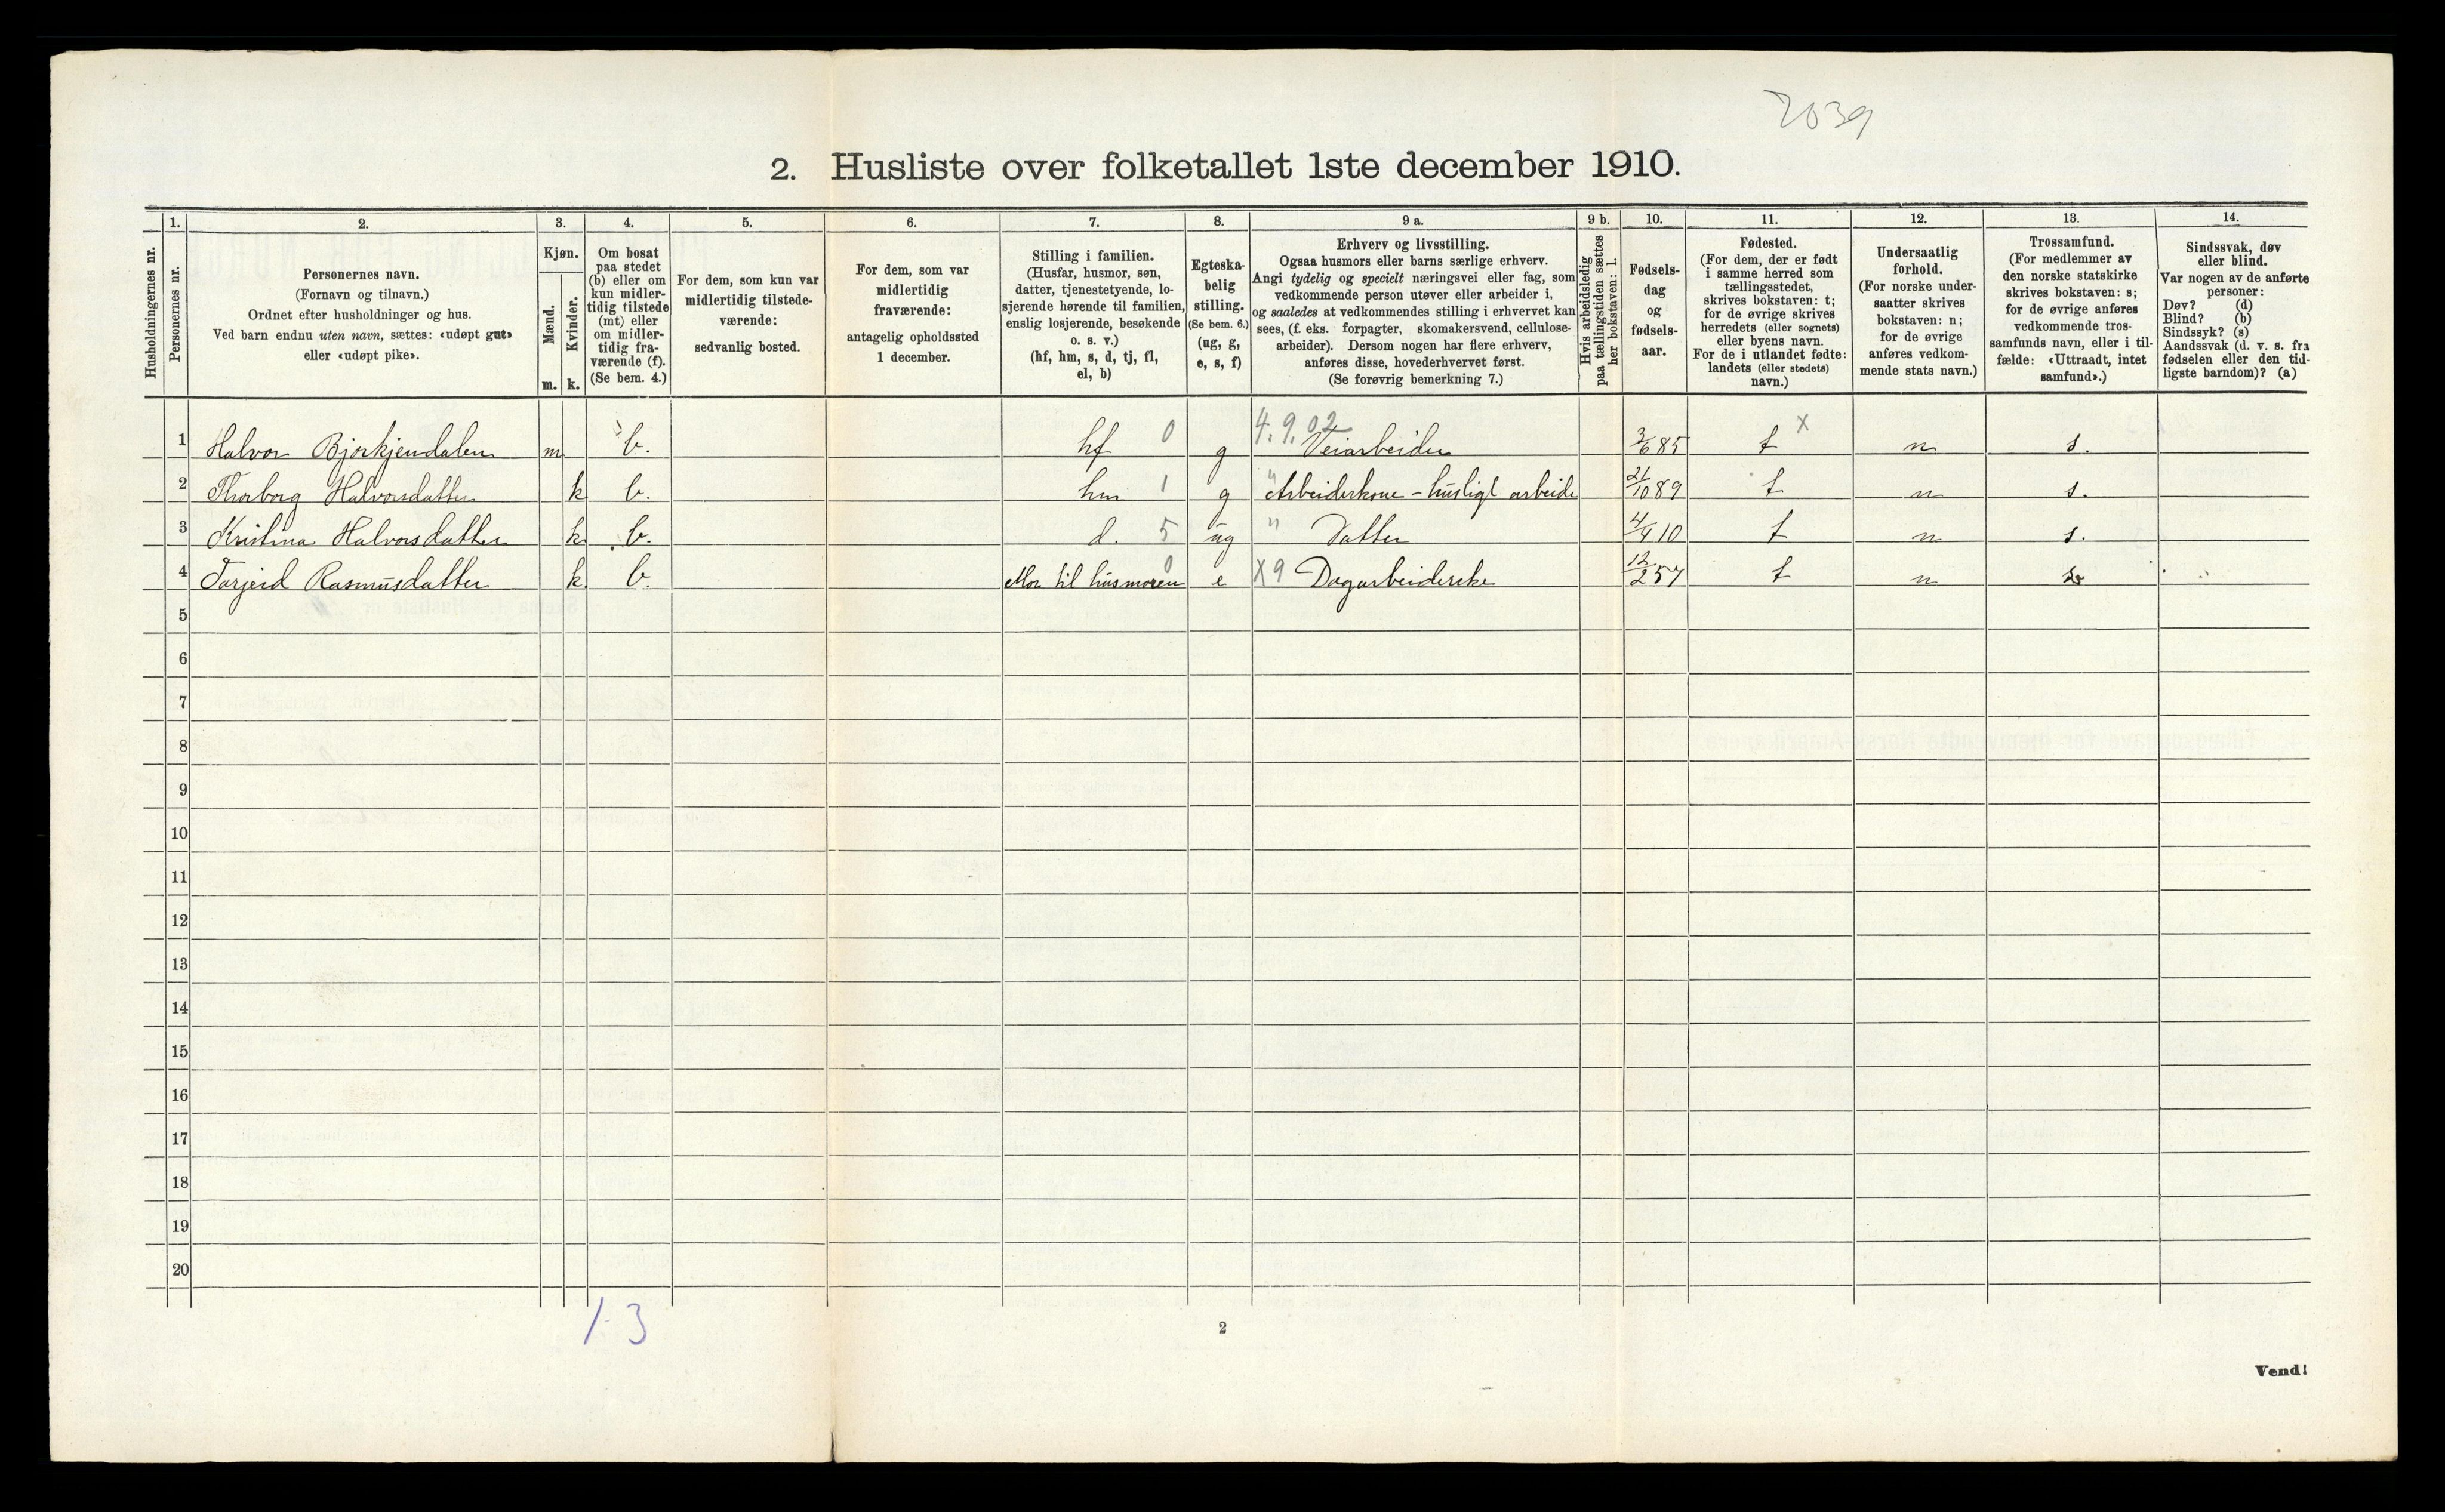 2039
2. Husliste over folketallet 1ste december 1910.
Husholdningernes nr.
1.
Personernes nr.
2.
Personernes navn.
(Fornavn og tilnavn.)
Ordnet efter husholdninger og hus.
Ved barn endnu uten navn, sættes: «udøpt gut»
eller «udøpt pike».
3.
Kjøn.
Mænd.
Kvinder.
m. k.
4.
Om bosat
paa stedet
(b) eller om
kun midler-
tidig tilstede
(mt) eller
om midler-
tidig fra-
værende (f).
(Se bem. 4.)
5.
For dem, som kun var
midlertidig tilstede-
værende:
sedvanlig bosted.
6.
For dem, som var
midlertidig
fraværende:
antagelig opholdssted
1 december.
7.
Stilling i familien.
(Husfar, husmor, søn,
datter, tjenestetyende, lo-
sjerende hørende til familien,
enslig losjerende, besøkende
o. s. v.)
(hf, hm, s, d, tj, fl,
el, b)
8.
Egteska-
belig
stilling.
(Se bem. 6.)
(ug, g,
e, s, f)
9 a.
Erhverv og livsstilling.
Ogsaa husmors eller barns særlige erhverv.
Angi tydelig og specielt næringsvei eller fag, som
vedkommende person utøver eller arbeider i,
og saaledes at vedkommendes stilling i erhvervet kan
sees, (f. eks. forpagter, skomakersvend, cellulose-
arbeider). Dersom nogen har flere erhverv,
anføres disse, hovederhvervet først.
(Se forøvrig bemerkning 7.)
9 b.
Hvis arbeidsledig
paa tællingstiden sættes
her bokstaven: l.
10.
Fødsels-
dag
og
fødsels-
aar.
11.
Fødested.
(For dem, der er født
i samme herred som
tællingsstedet,
skrives bokstaven: t;
for de øvrige skrives
herredets (eller sognets)
eller byens navn.
For de i utlandet fødte:
landets (eller stedets)
navn.)
12.
Undersaatlig
forhold.
(For norske under-
saatter skrives
bokstaven: n;
for de øvrige
anføres vedkom-
mende stats navn.)
13.
Trossamfund.
(For medlemmer av
den norske statskirke
skrives bokstaven: s;
for de øvrige anføres
vedkommende tros-
samfunds navn, eller i til-
fælde: «Uttraadt, intet
samfund».)
14.
Sindssvak, døv
eller blind.
Var nogen av de anførte
personer:
Døv? (d)
Blind? (b)
Sindssyk? (s)
Aandssvak (d. v. s. fra
fødselen eller den tid-
ligste barndom)? (a)
1 Halvor Bjorkjendalen m b. hf 0 g 4.9.02 Veiarbeider 3/6 85 t x n s.
2 Thorborg Halvorsdatter k b. hm 1 g " Arbeiderkone - husligt arbeide 21/10 89 t n s.
3 Kristina Halvorsdatter k b. d. 5 ug " Datter 4/4 10 t n s.
4 Torjerd Rasmusdatter k. b. Mor til husmoren 0 e X9 Dagarbeiderske 12/2 57 t n s
5
6
7
8
9
10
11
12
13
14
15
16
17
18
19
20
1-3
2
Vend!